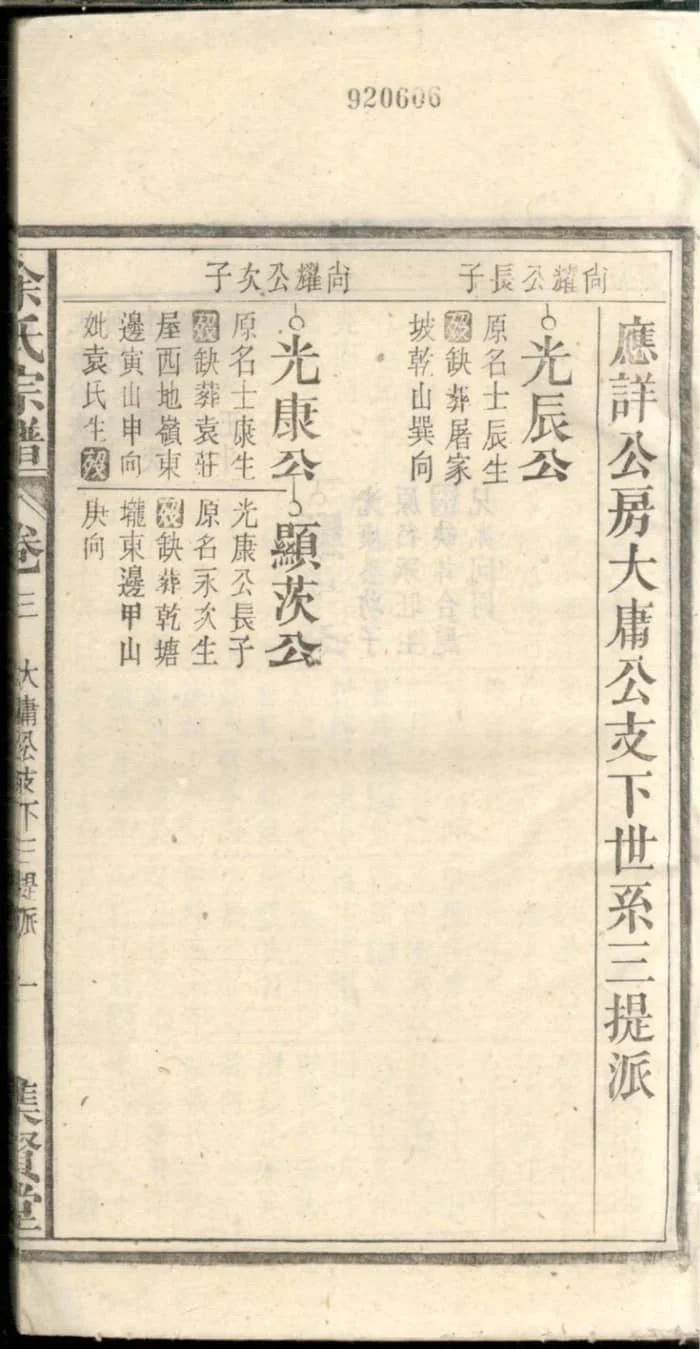 920606
應詳公房大庸公支下世系三提派
尙耀公長子
光辰公
原名士辰生
歿缺葬屠家
坡乾山巽向
尙耀公次子
光康公
原名士康生
歿缺葬袁莊
屋西地嶺東
邊寅山申向
妣袁氏生歿
顯茨公
光康公長子
原名永次生
歿缺葬乾塘
壠東邊甲山
庚向
余氏宗譜
卷三
大庸公支下三提派
一
集賢堂